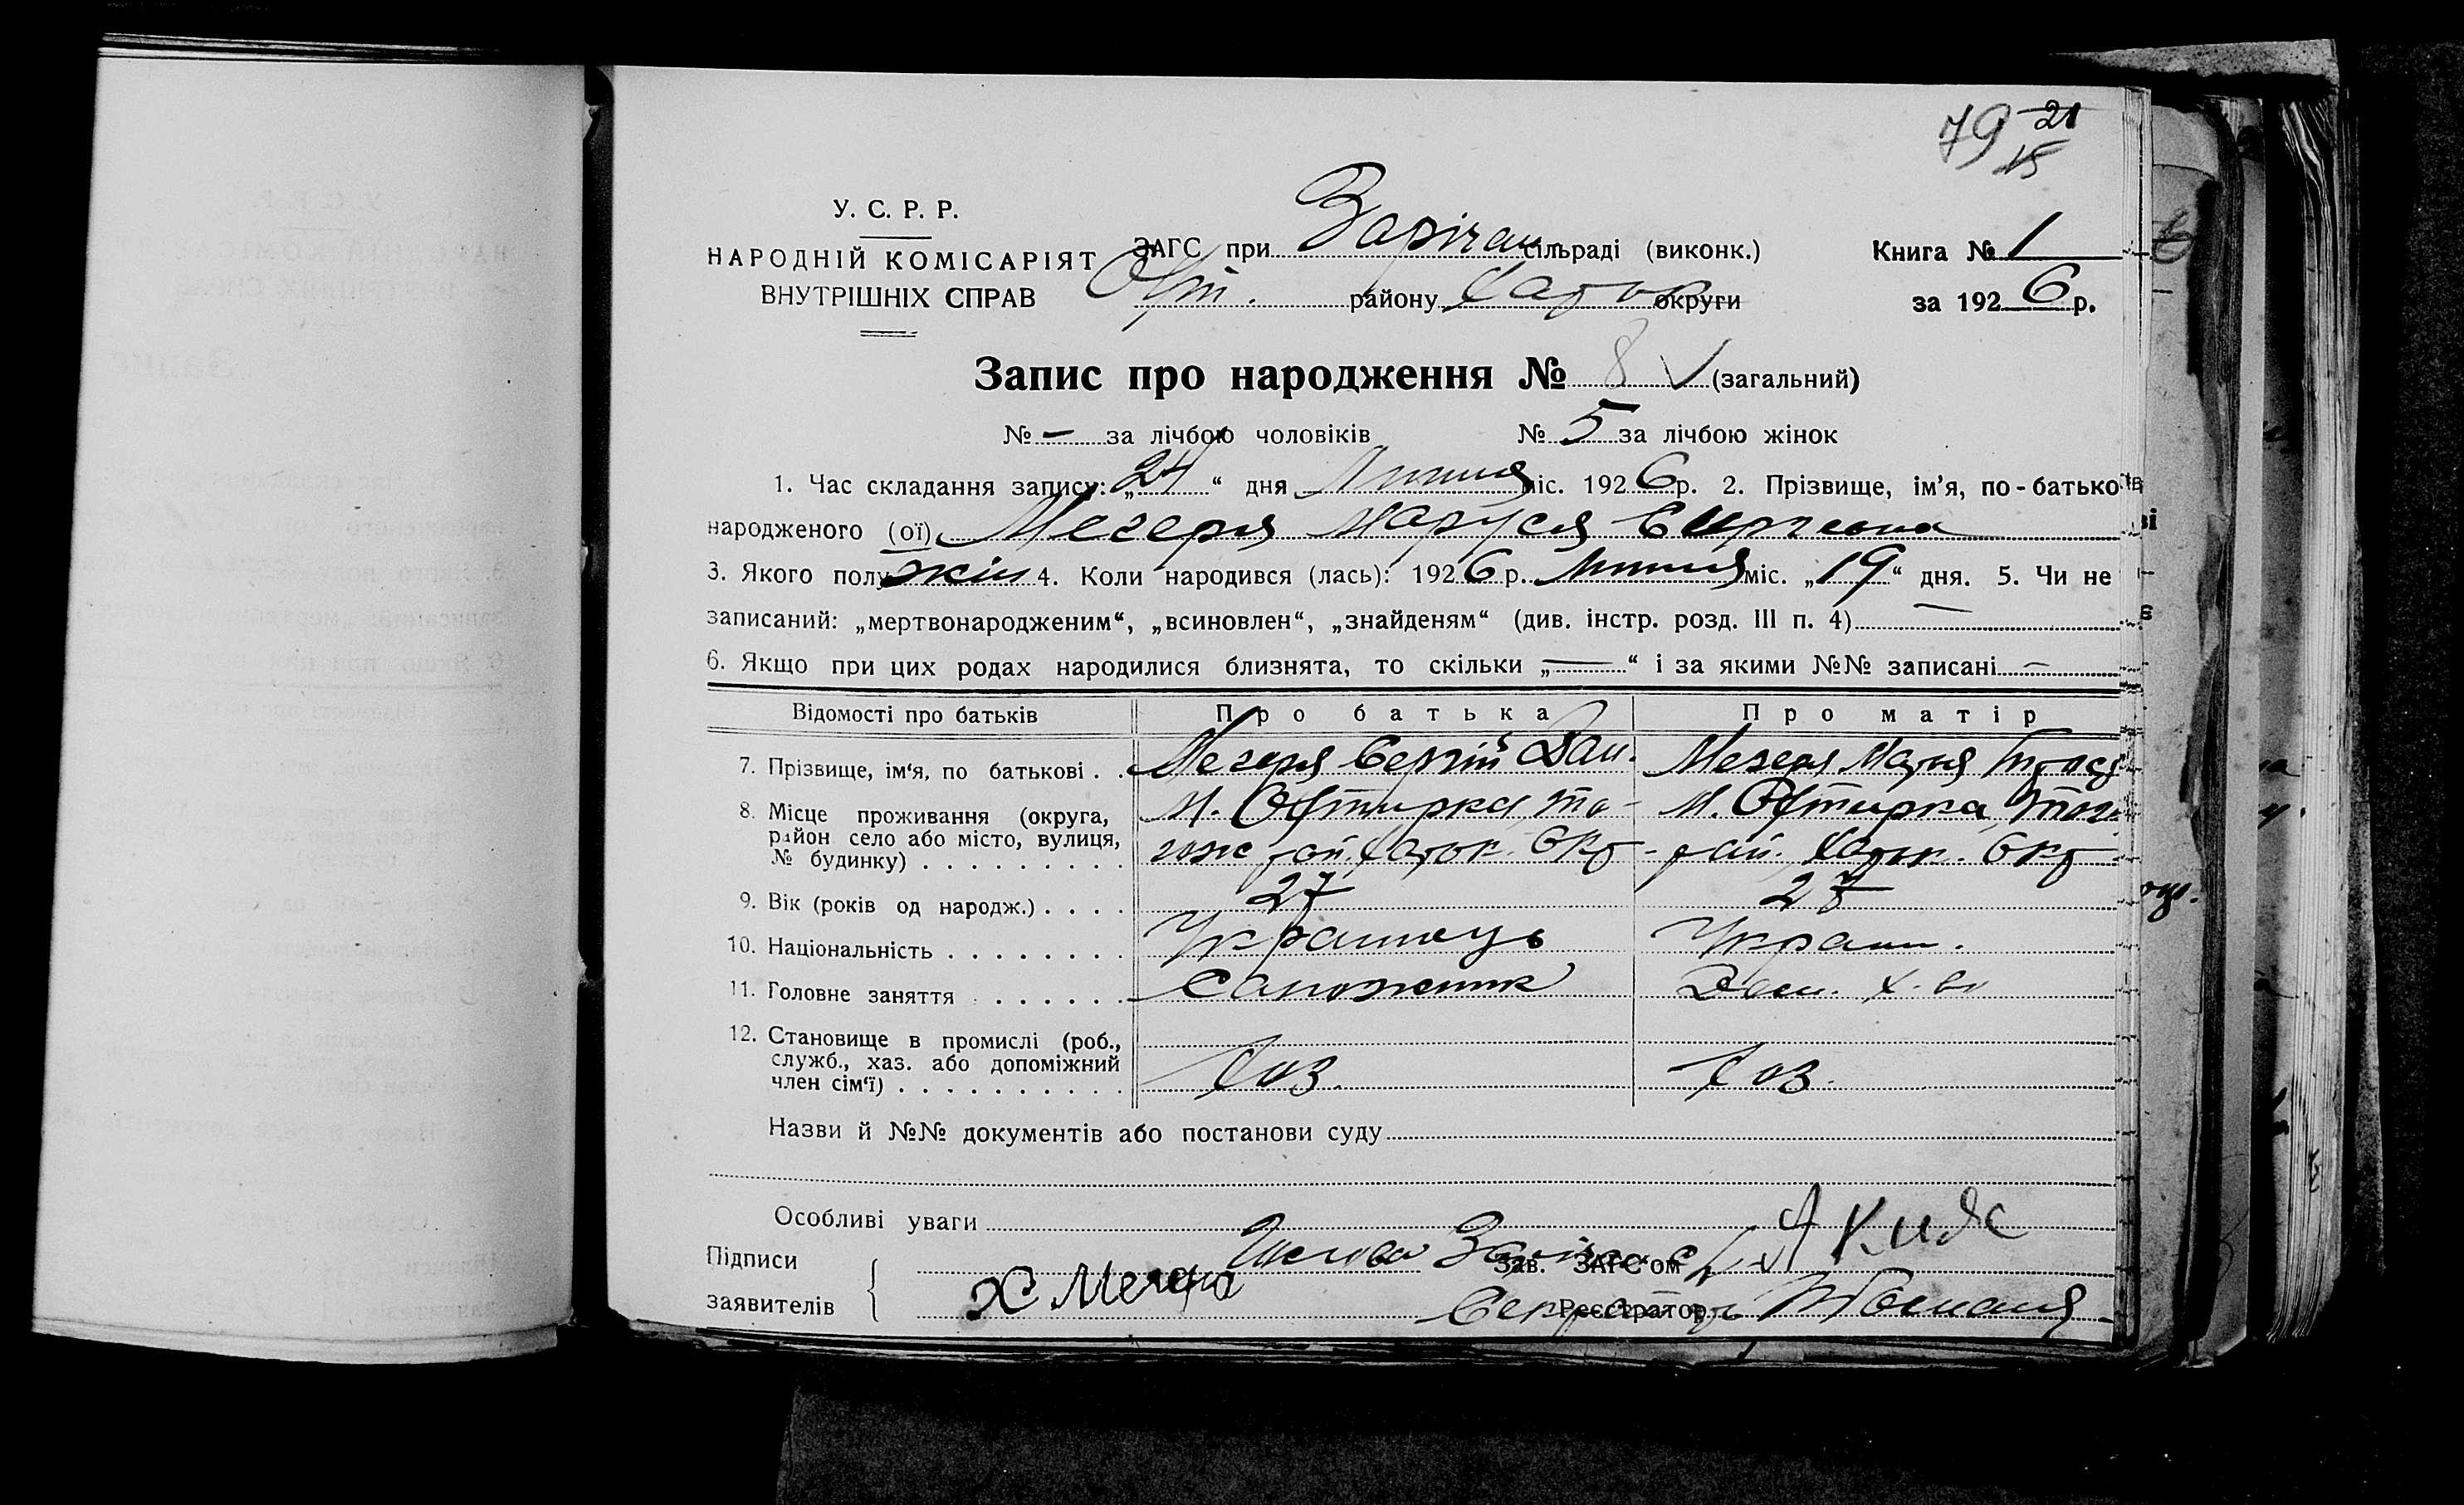 79 21
15
У. С. Р. Р.
НАРОДНІЙ КОМІСАРІЯТ
ВНУТРІШНІХ СПРАВ
ЗАГС при Зарічан. сільраді (виконк.)
Охт. району Харьк округи
Книга № 1
за 1926 р.
Запис про народження № 8 (загальний)
№ — за лічбою чоловіків № 5 за лічбою жінок
1. Час складання запису: „24“ дня Липня міс. 1926 р. 2. Прізвище, ім’я, по-батько
народженого (ої) Мегеря Маруся
3. Якого полу жін 4. Коли народився (лась): 1926 р. Липня міс. „19“ дня. 5. Чи не
записаний: „мертвонародженим“, „всиновлен“, „знайденям“ (див. інстр. розд. III п. 4) —
6. Якщо при цих родах народилися близнята, то скільки „—“ і за якими №№ записані —
Відомості про батьків Про батька Про матір
7. Прізвище, ім‘я, по батькові . . Мегеря Сергій Дан. Мегеря Марія
8. Місце проживання (округа, район село або місто, вулиця, № будинку) . . . . . . . . .
М. Охтирка, то-
гож рай. Харьк. Окр
М. Охтирка, того
рай. Харьк. Окр
9. Вік (років од народж.) . . . . 27 27
10. Національність . . . . . . . . Українець Україн.
11. Головне заняття . . . . . . . Сапожник Дом. х-во
12. Становище в промислі (роб., служб., хаз. або допоміжний член сім‘ї) . . . . . . . . . . Хаз. Хаз.
Назви й №№ документів або постанови суду
Особливі уваги
Підписи
заявителів
Х Мегеря
Голова Зав. ЗАГС‘ом
Секретарь Реєстратор